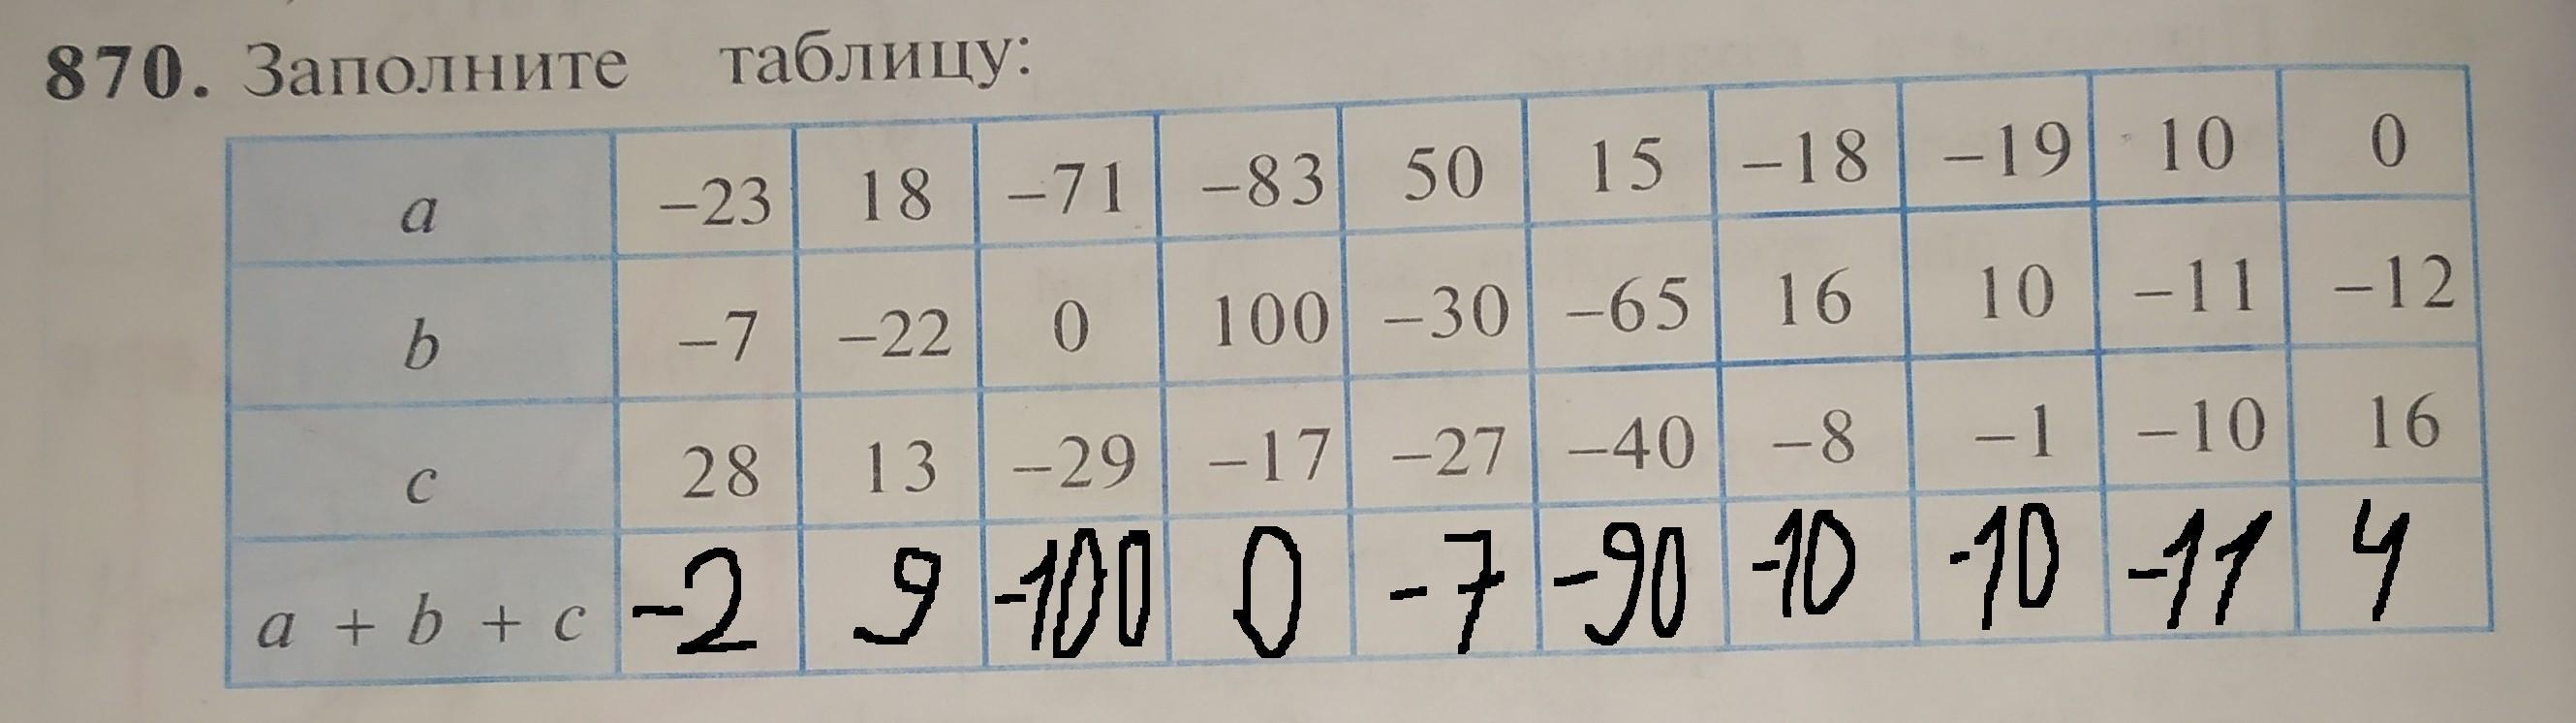 870. Заполните таблицу:
a −23 18 −71 −83 50 15 −18 −19 10 0
b −7 −22 0 100 −30 −65 16 10 −11 −12
c 28 13 −29 −17 −27 −40 −8 −1 −10 16
a + b + c −2 9 −100 0 −7 −90 −10 −10 −11 4